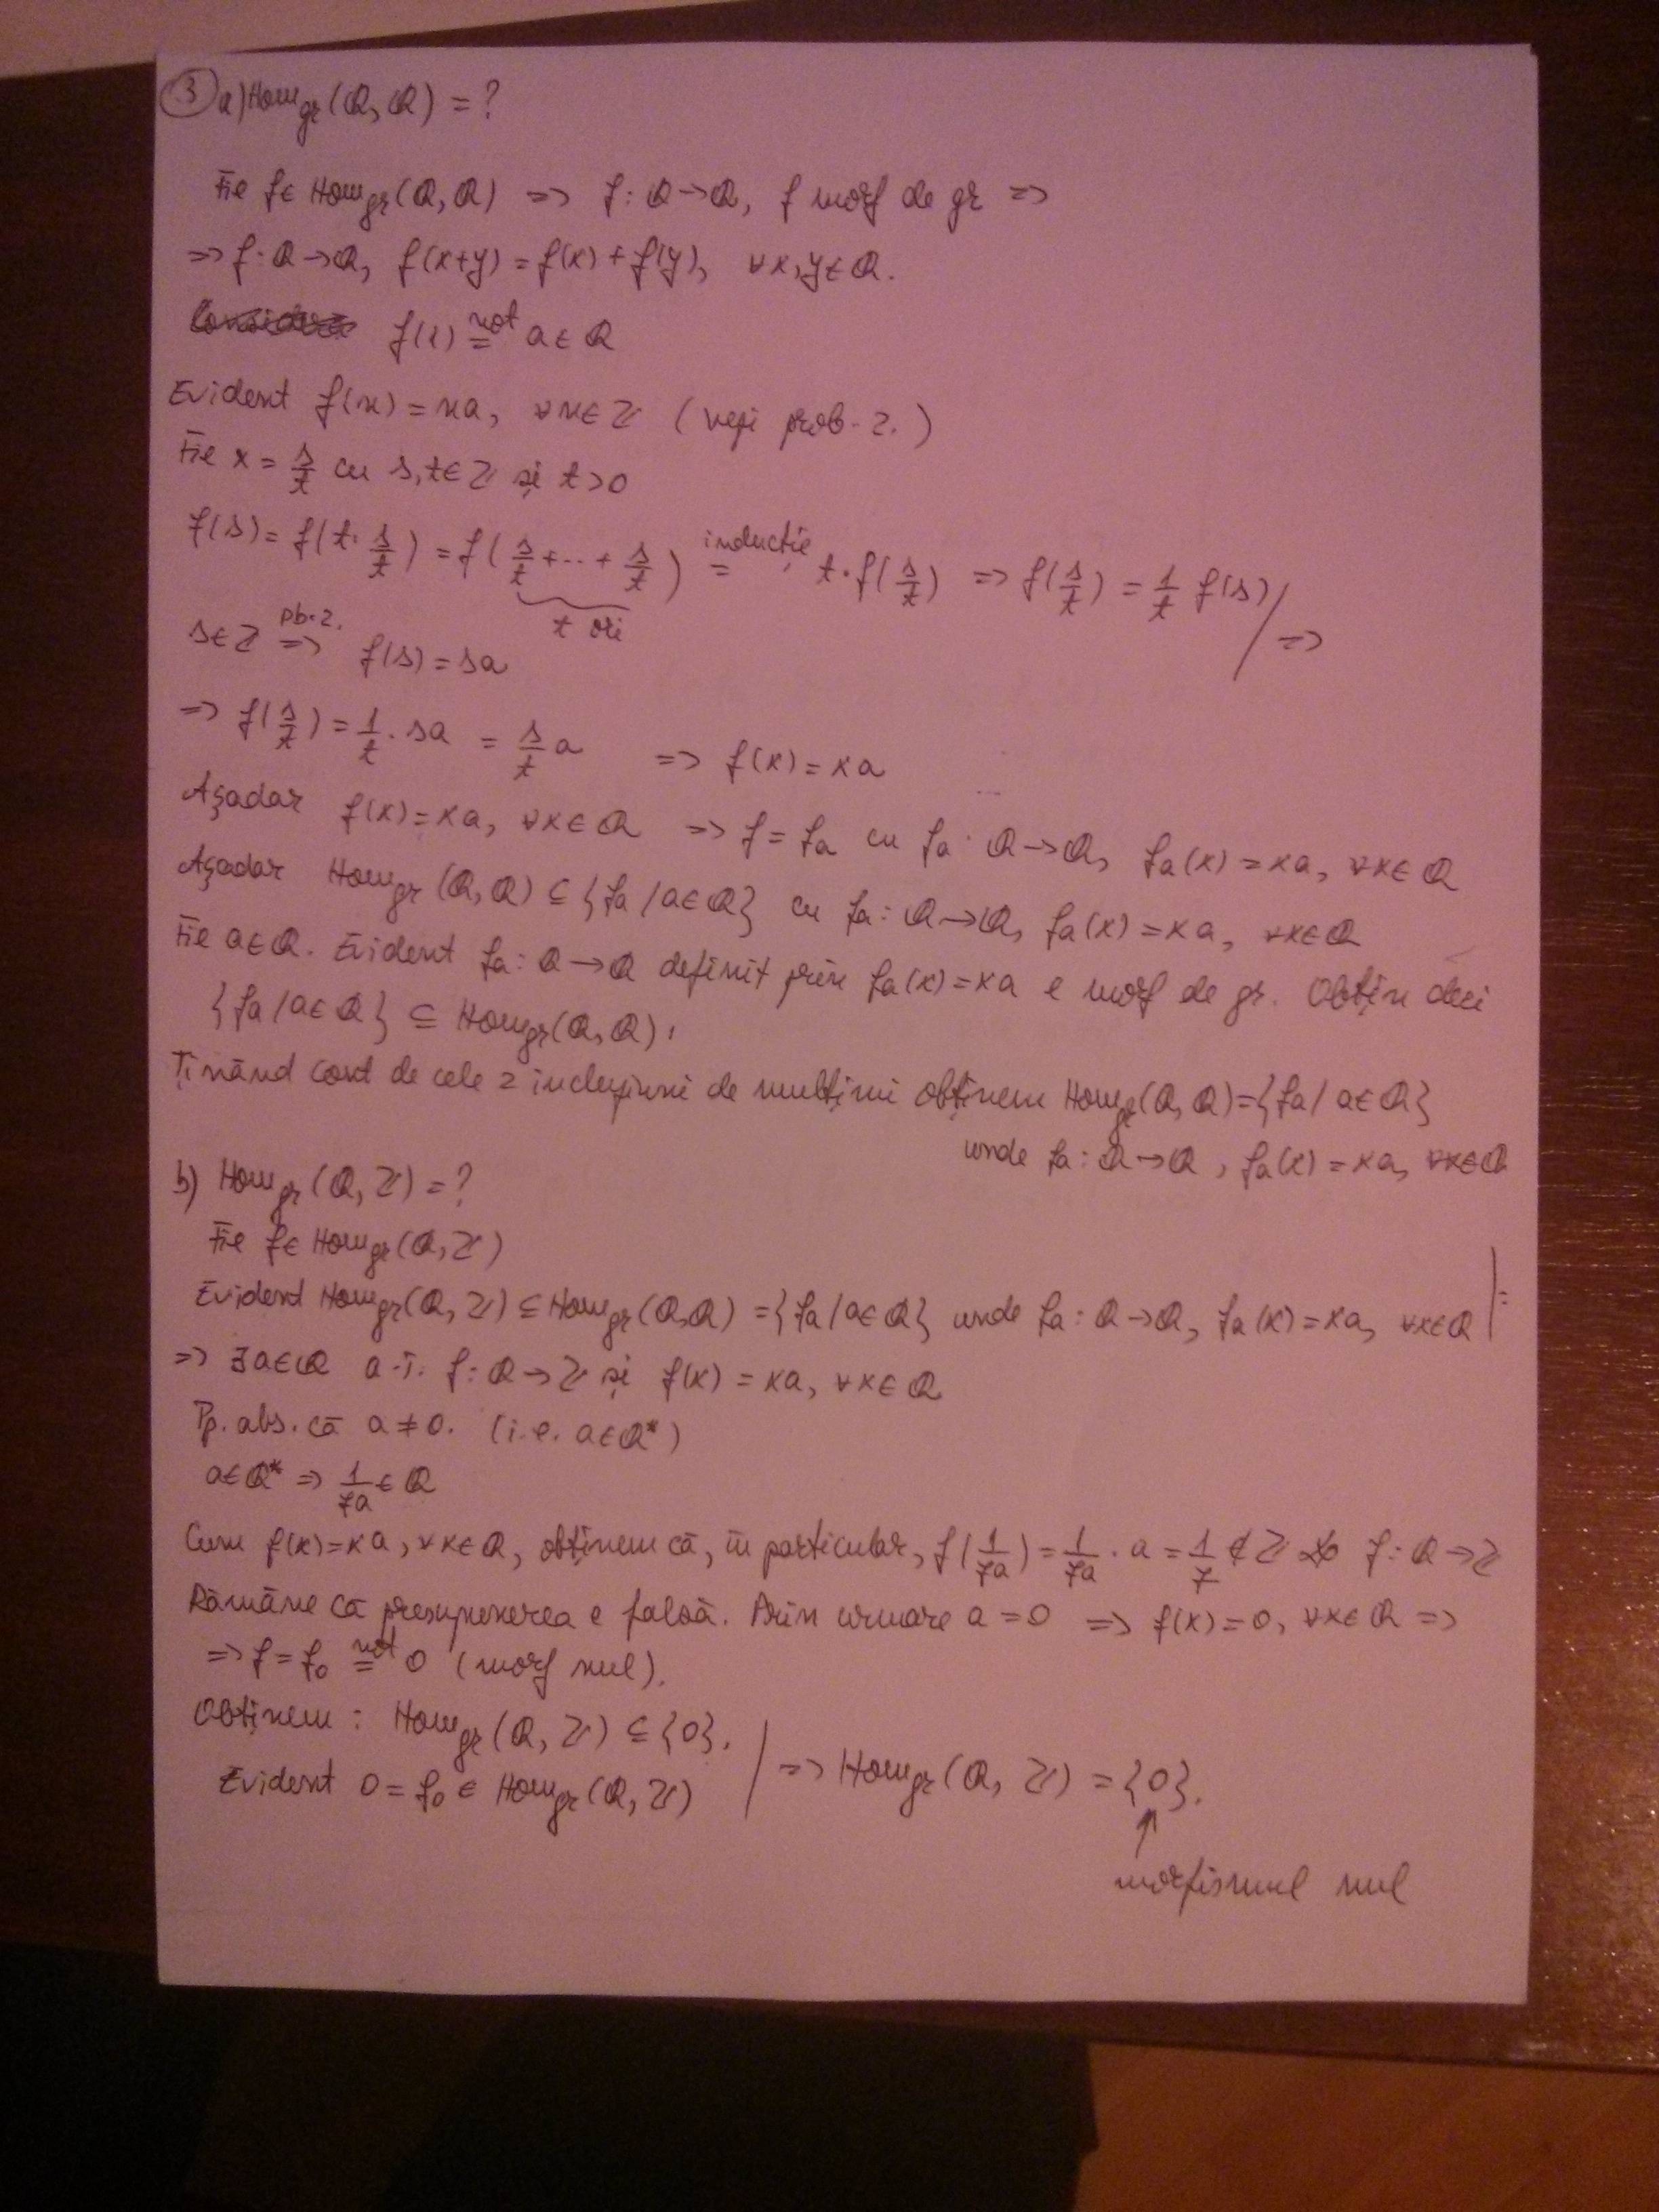 ③ a) Hom_gr(Q,Q) = ?
Fie f∈ Hom_gr(Q,Q) => f: Q→Q, f morf de gr =>
=> f: Q→Q, f(x+y) = f(x) + f(y), ∀x,y∈Q.
f(1) not= a∈Q
Evident f(n) = na, ∀n∈Z (vezi prob. 2.)
Fie x = s/t cu s,t∈Z și t>0
f(s) = f(t·s/t) = f(s/t+...+s/t) inducție= t·f(s/t) => f(s/t) = 1/t f(s) / =>
t ori
s∈Z pb.2.=> f(s) = sa
=> f(s/t) = 1/t · sa = s/t a => f(x) = xa
Așadar f(x)=xa, ∀x∈Q => f = fa cu fa: Q→Q, fa(x) = xa, ∀x∈Q
Așadar Hom_gr(Q,Q) ⊆ {fa / a∈Q} cu fa: Q→Q, fa(x) = xa, ∀x∈Q
Fie a∈Q. Evident fa: Q→Q definit prin fa(x)=xa e morf de gr. Obțin deci
{fa / a∈Q} ⊆ Hom_gr(Q,Q).
Ținând cont de cele 2 incluziuni de mulțimi obținem Hom_gr(Q,Q)={fa / a∈Q}
unde fa: Q→Q, fa(x) = xa, ∀x∈Q
b) Hom_gr(Q,Z) = ?
Fie f∈ Hom_gr(Q,Z)
Evident Hom_gr(Q,Z) ⊆ Hom_gr(Q,Q) = {fa / a∈Q} unde fa: Q→Q, fa(x) = xa, ∀x∈Q | =
=> ∃a∈Q a.î. f: Q→Z și f(x) = xa, ∀x∈Q
Pp. abs. că a ≠ 0. (i.e. a∈Q*)
a∈Q* => 1/7a ∈ Q
Cum f(x)=xa, ∀x∈Q, obținem că, în particular, f(1/7a) = 1/7a · a = 1/7 ∉ Z f: Q→Z
Rămâne că presupunerea e falsă. Prin urmare a = 0 => f(x) = 0, ∀x∈Q =>
=> f = f₀ not= 0 (morf nul).
Obținem : Hom_gr(Q,Z) ⊆ {0}.
Evident 0 = f₀ ∈ Hom_gr(Q,Z) | => Hom_gr(Q,Z) = {0}.
↑
morfismul nul